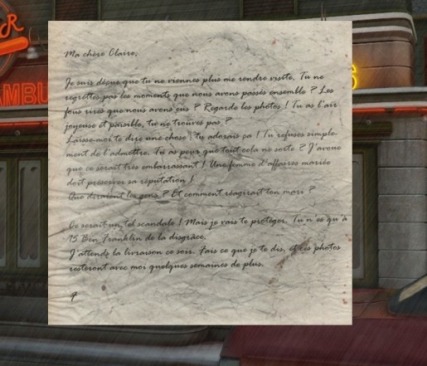 R
AMBU
Ma chère Claire,
Je suis déçue que tu ne viennes plus me rendre visite. Tu ne
regrettes pas les moments que nous avons passés ensemble ? Les
fous rires que nous avons eus ? Regarde les photos ! Tu as l'air
joyeuse et paisible, tu ne trouves pas ?
Laisse-moi te dire une chose : tu adorais ça ! Tu refuses simple-
ment de l'admettre. Tu as peur que tout cela ne sorte ? J'avoue
que ce serait très embarrassant ! Une femme d'affaires mariée
doit préserver sa réputation !
Que diraient les gens ? Et comment réagirait ton mari ?
Ce serait un tel scandale ! Mais je vais te protéger. Tu n'es qu'à
15 Ben Franklin de la disgrâce.
J'attends la livraison ce soir. Fais ce que je te dis, et les photos
resteront avec moi quelques semaines de plus.